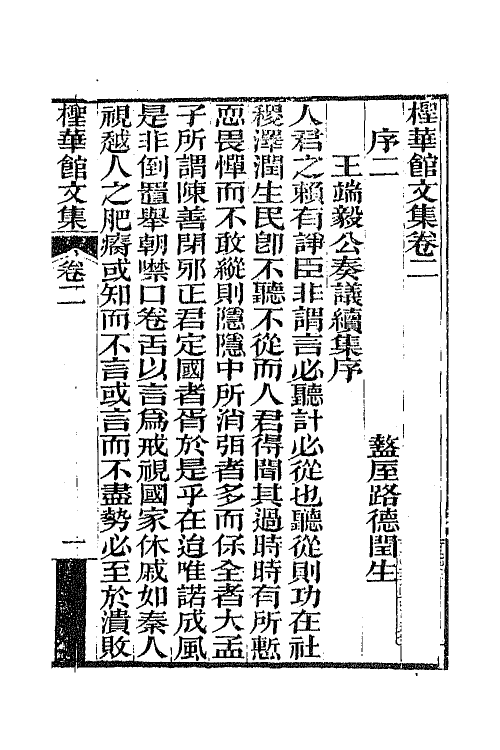 檉華館文集卷二
序二　盩厔路德閏生
王端毅公奏議續集序
人君之賴有諍臣非謂言必聽計必從也聽從則功在社
稷澤潤生民卽不聽不從而人君得聞其過時時有所慙
恧畏憚而不敢縱則隱隱中所消弭者多而保全者大孟
子所謂陳善閉邪正君定國者胥於是乎在迨唯諾成風
是非倒置舉朝噤口卷舌以言爲戒視國家休戚如秦人
視越人之肥瘠或知而不言或言而不盡勢必至於潰敗
檉華館文集　卷二　一